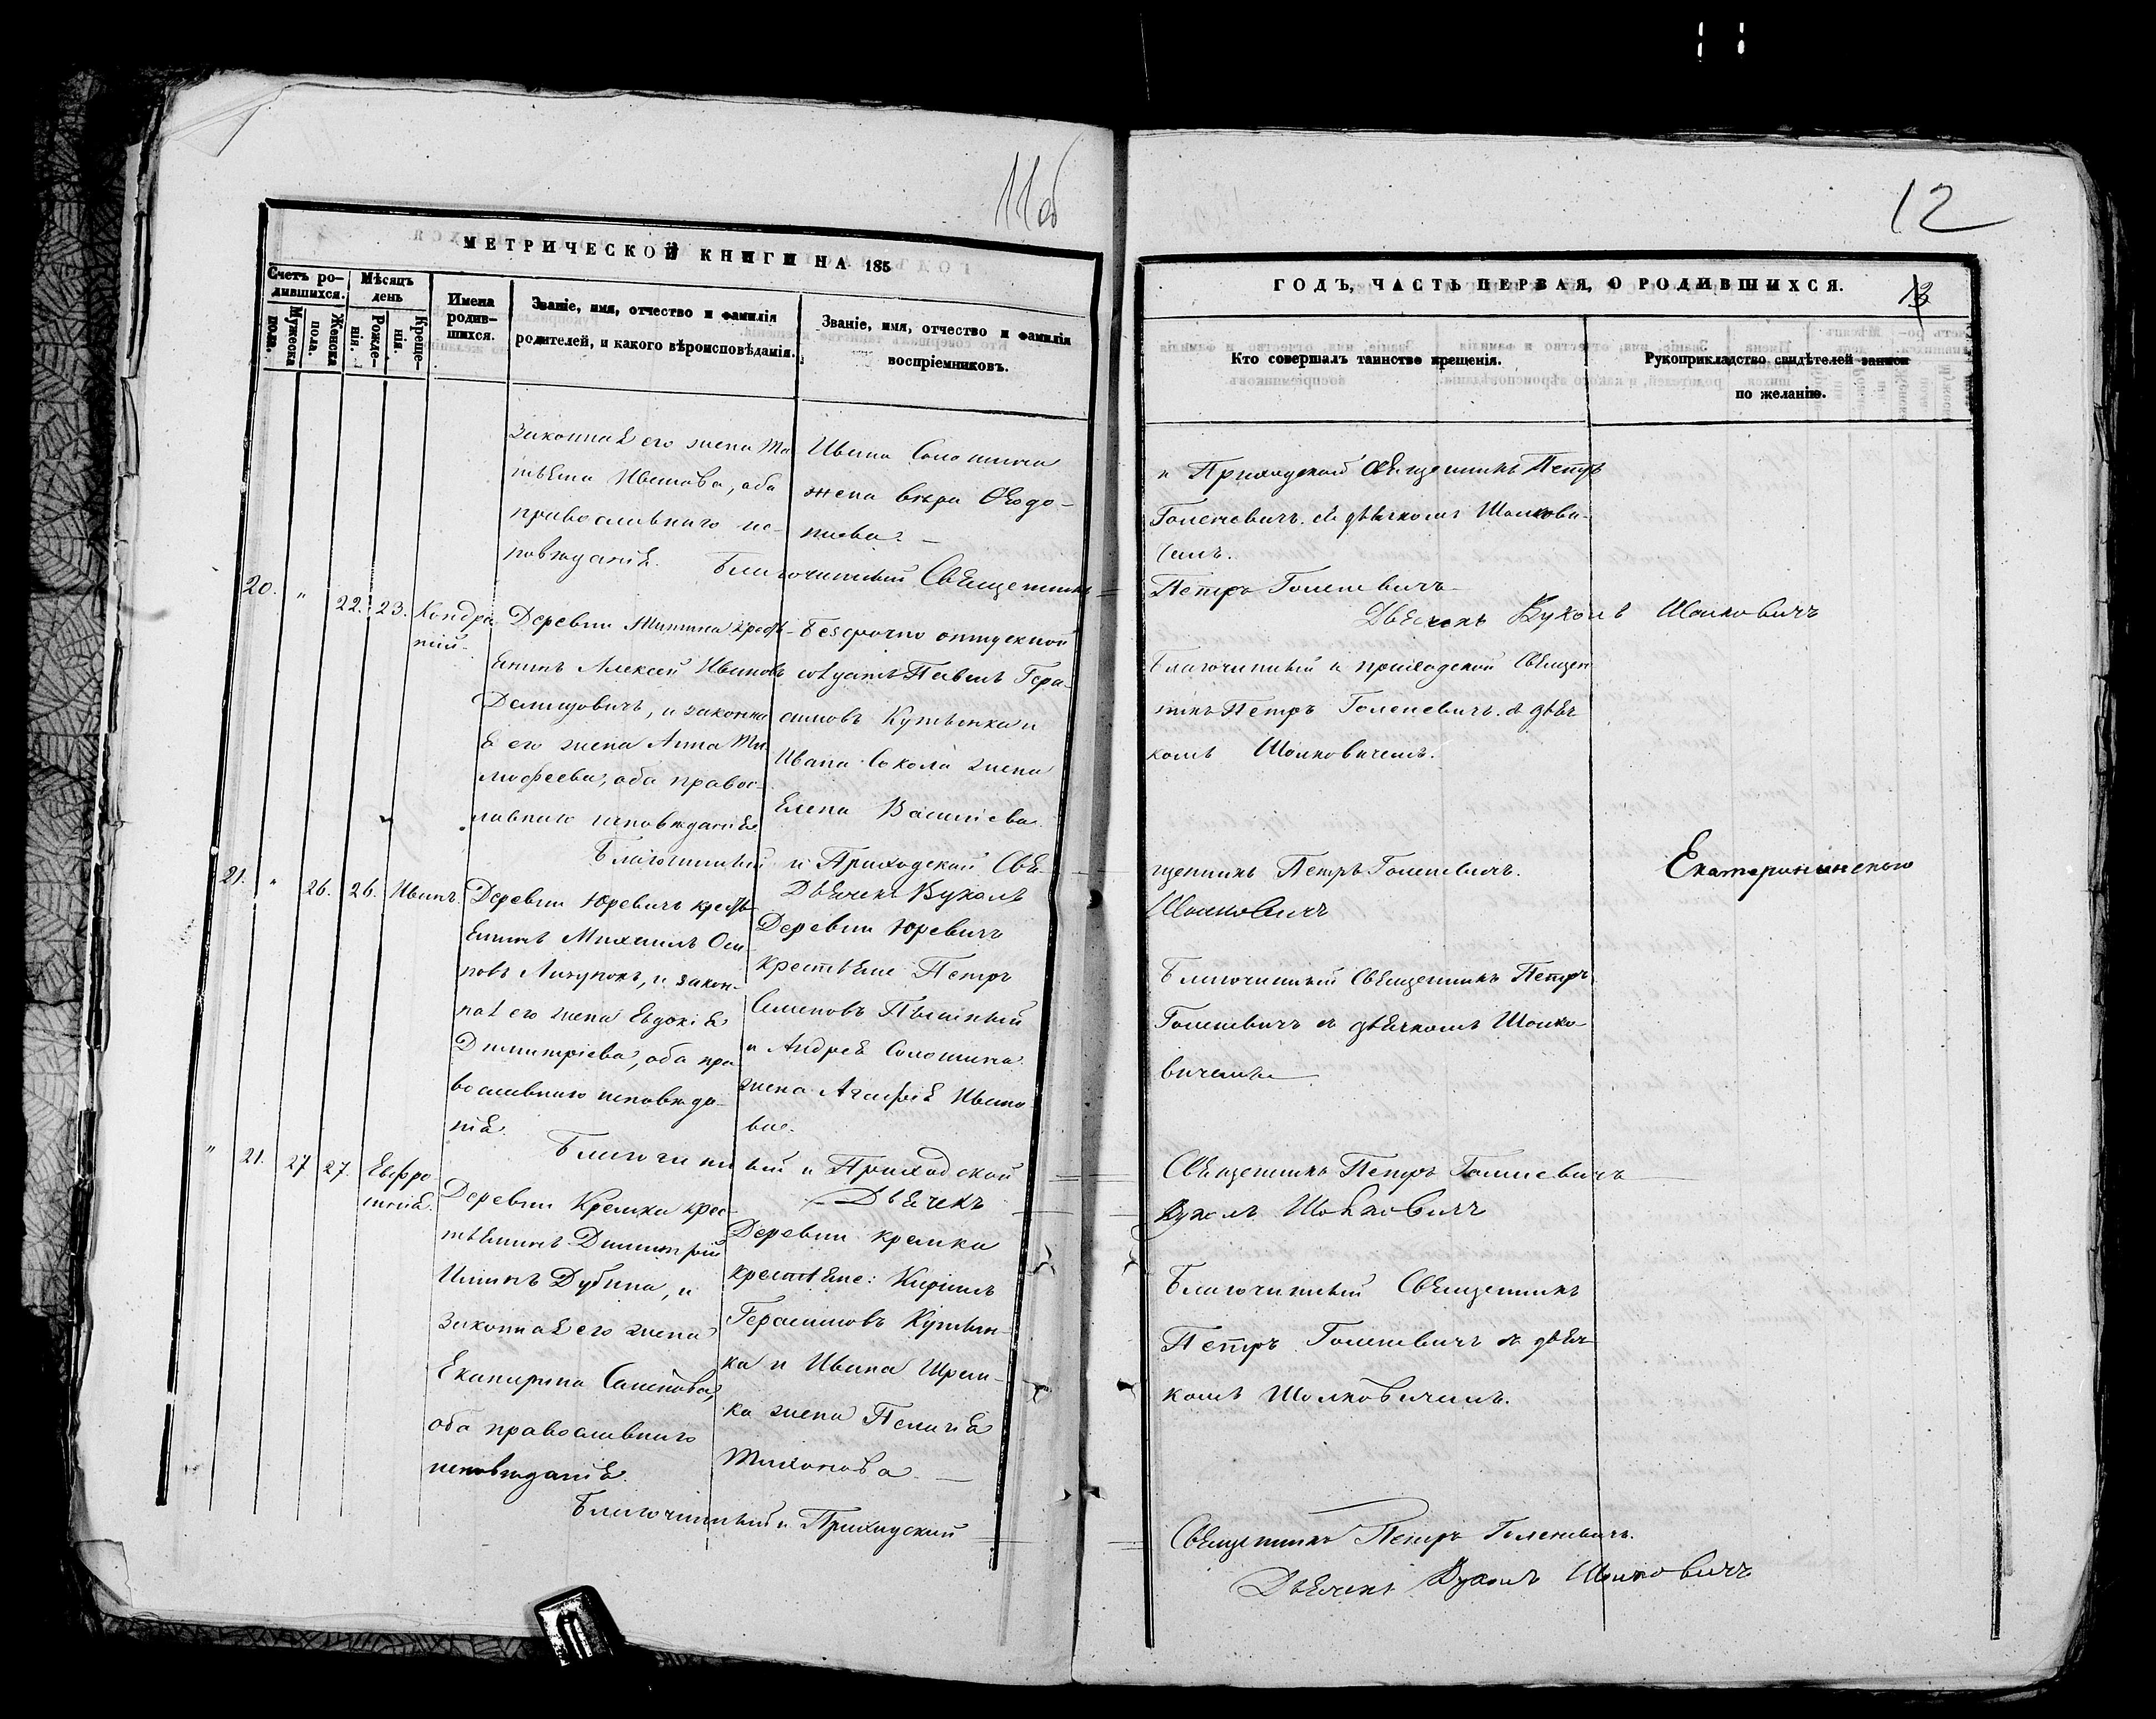 11об
МЕТРИЧЕСКОЙ КНИГИ НА 185
Счетъ ро-
дившихся.
Мужеска
пола.
Женска
пола.
Мѣсяцъ
день
Рожде-
нія.
Креще-
нія.
Имена
родив-
шихся.
Званіе, имя, отчество и фамилія
родителей, и какого вѣроисповѣданія.
Званіе, имя, отчество и фамилія
воспріемниковъ.
законная его жена Та
тьяна Иванова, оба
православнаго ис-
повѣданія.
Ивана Соломина
жена Вѣра Ѳеодо-
Благочинный Священникъ
20. " 22. 23. Кондра
тій.
Деревни Минина кресть-
янинъ Алексей Ивановъ
Демидовичъ, и законна
я его жена Анна Ти
мофеева, оба правос-
лавнаго исповѣданія
Безсрочно отпускной
солдатъ Павелъ Гера-
симовъ Кутынка и
Ивана Сокола жена
Елена Василіева.
Благочинный и Приходской Свя
Дьячекъ Вуколъ
21. " 26. 26. Иванъ.
Деревни Юревичъ кресть-
янинъ Михаилъ Оси
повъ Лизунокъ, и закон-
ная его жена Евдокія
Димитріева, оба пра
вославнаго исповѣда-
нія.
Деревни Юревичъ
крестьяне Петръ
Семеновъ
и Андрея Соломина
жена Агафія Ивано-
ва.
Благочинный и Приходской
Дьячекъ
" 21. 27 27. Евфро
синія.
Деревни Кремка крес-
тьянинъ Димитрій
Ильинъ Дубина, и
законная его жена
Екатерина Семенова,
оба православнаго
исповѣданія.
Деревни Кремка
крестьяне: Кирилъ
Герасимовъ Кутын-
ка и Ивана Шрем-
ка жена Пелагія
Тихонова.
Благочинный и Приходский
12
ГОДЪ, ЧАСТЬ ПЕРВАЯ, О РОДИВШИХСЯ.
Кто совершалъ таинство крещенія.
Рукоприкладство свидѣтелей записи
по желанію.
и Приходской Священникъ Петръ
Голеневичъ съ дьячкомъ Шолкови-
Петръ Голеневичъ
Дьячекъ Вуколъ Шолковичъ
Благочинный и приходской Священ-
никъ Петръ Голеневичъ съ дьяч-
комъ Шолковичемъ.
щенникъ Петръ Голеневичъ.
Екатерининского
Шолковичъ
Благочинный Священникъ Петръ
Голеневичъ съ дьячкомъ Шолко-
вичемъ
Священникъ Петръ Голеневичъ
Вуколъ Шолковичъ
Благочинный Священникъ
Петръ Голеневичъ съ дьяч-
комъ Шолковичемъ.
Священникъ Петръ Голеневичъ.
Дьячекъ Вуколъ Шолковичъ